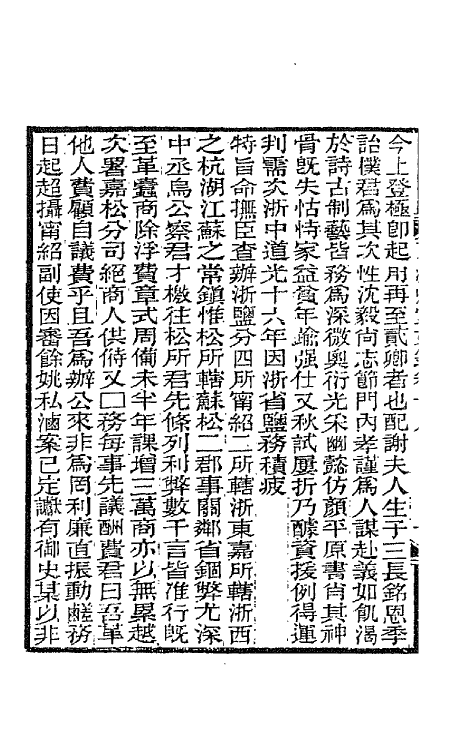 今上登極卽起用再至貳卿者也配謝夫人生子三長銘恩季
詒僕君爲其次性沈毅尙志節門內孝謹爲人謀赴義如飢渴
於詩古制藝皆務爲深微奧衍光采幽懿仿顏平原書肖其神
骨旣失怙恃家益貧年踰强仕又秋試屢折乃醵資援例得運
判需次浙中道光十六年因浙省鹽務積疲
特旨命撫臣查辦浙鹽分四所甯紹二所轄浙東嘉所轄浙西
之杭湖江蘇之常鎭惟松所轄蘇松二郡事關鄰省錮弊尤深
中丞烏公察君才檄往松所君先條列利弊數千言皆准行旣
至革蠹商除浮費章式周備未半年課增三萬商亦以無累越
次署嘉松分司絕商人供偫又囗務每事先議酬費君曰吾革
他人費顧自議費乎且吾爲辦公來非爲罔利廉直振動鹺務
日起超攝甯紹副使因審餘姚私滷案已定讞有御史某以非